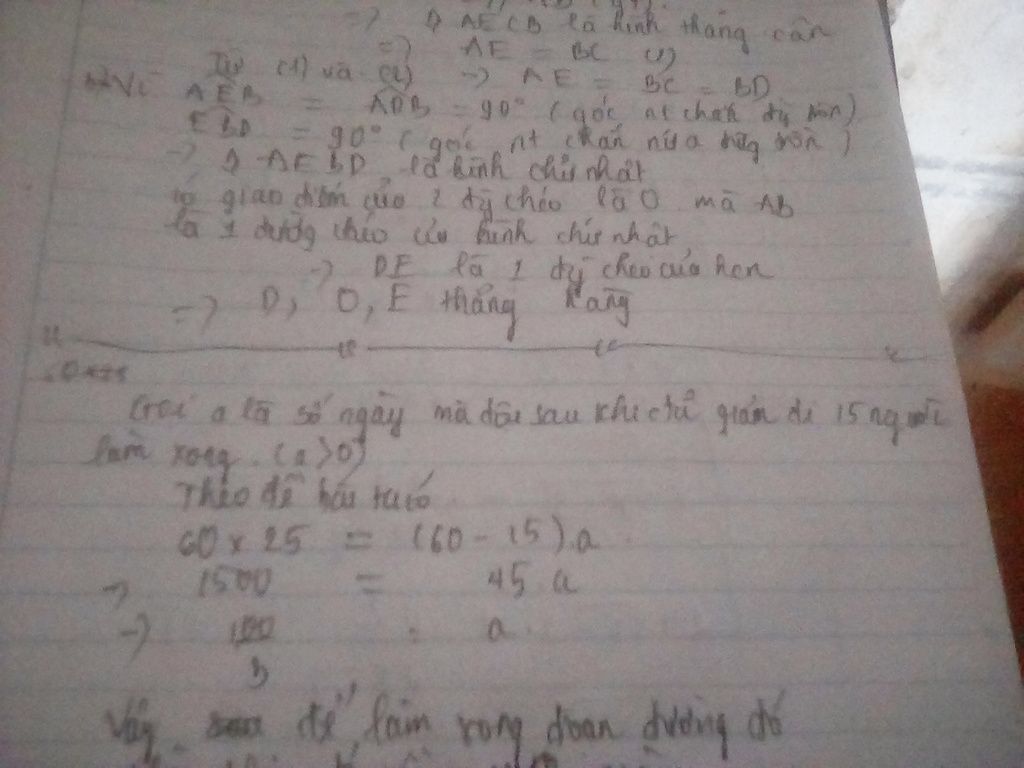 => ◊ AECB là hình thang cân
=> AE = BC (1)
Từ (1) và (2) -> AE = BC = BD
Vì AEB = ADB = 90° (góc nt chắn
EBD = 90° (góc nt chắn nửa đường tròn)
-> ◊ AEBD là hình chữ nhật
có giao điểm của 2 đg chéo là O mà AB
là 1 đường chéo của hình chữ nhật
-> DE là 1 đg chéo của hcn
=> D, O, E thẳng hàng
Gọi a là số ngày mà đội sau khi chỉ giảm đi 15 người
làm xong. (a>0)
Theo đề bài ta có
60 x 25 = (60 - 15).a
-> 1500 = 45 a
-> 100 = a
3
Vậy để làm xong đoạn đường đó